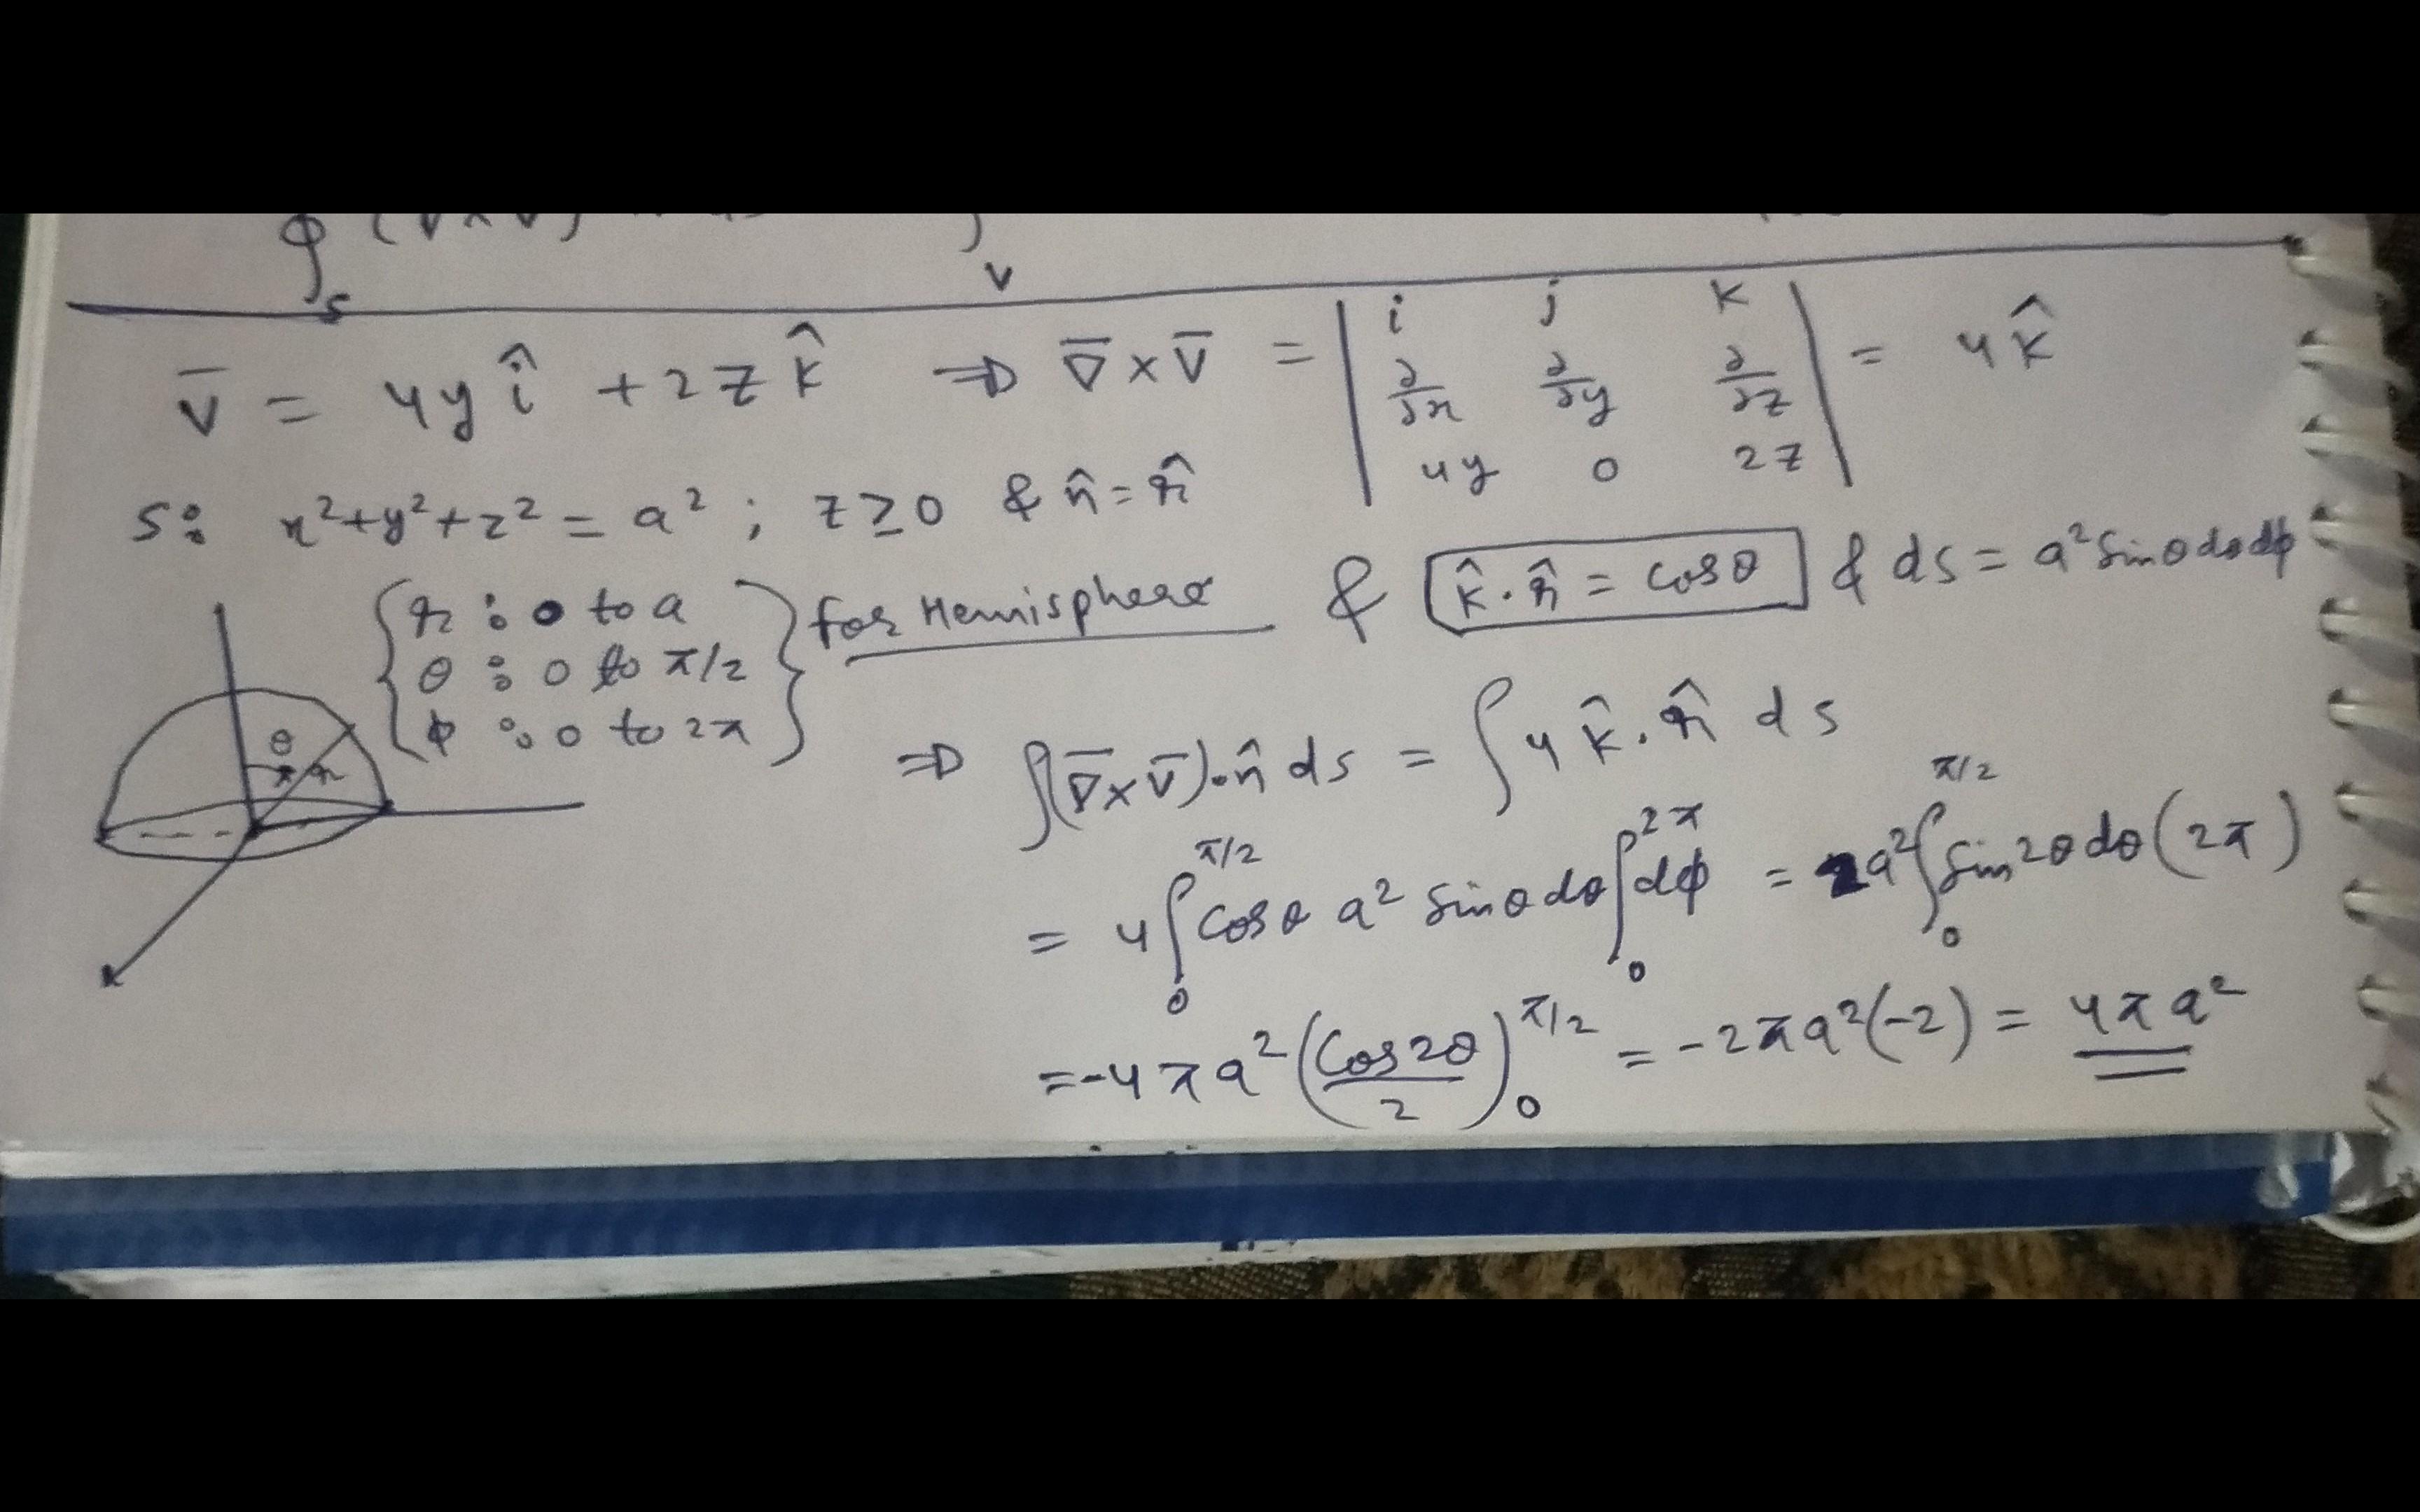 ∮ₛ (∇×V) ∫ᵥ
V̄ = 4y î + 2z k̂ ⇒ ∇̄×V̄ = | i j k ; ∂/∂x ∂/∂y ∂/∂z ; 4y 0 2z | = 4k̂
S: x²+y²+z² = a² ; z≥0 & n̂ = r̂
{ r : 0 to a
θ : 0 to π/2
ϕ : 0 to 2π } for Hemisphere & [k̂·r̂ = cosθ] & ds = a² sinθdθdϕ
θ r
⇒ ∫(∇̄×V̄)·n̂ ds = ∫4 k̂·r̂ ds
= 4∫₀^{π/2} cosθ a² sinθdθ ∫₀^{2π} dϕ = 2a² ∫₀^{π/2} sin2θdθ (2π)
= -4πa² (cos2θ/2)₀^{π/2} = -2πa²(-2) = 4πa²